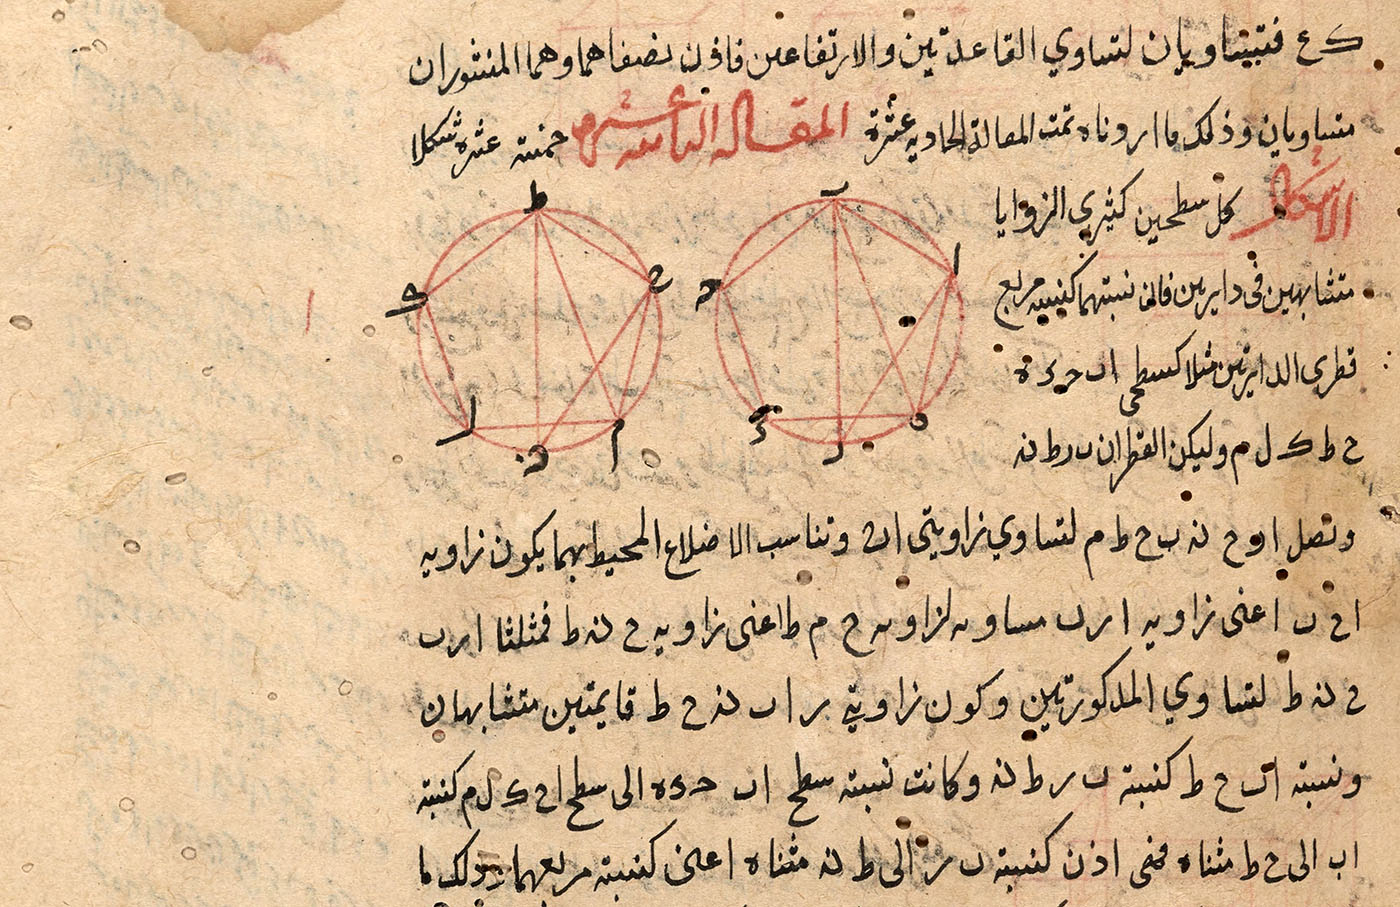 ك ع فتبيتساويان لتساوي القاعدتين والارتفاعين فاذن نصفاهما وهما المنشوران
متساويان وذلك ما اردناه تمت المقالة الحاديه عشرة المقاله الثانيه عشر خمسة عشره شكلا
الاشكال كل سطحين كثيري الزوايا
متشابهين فى دايرتين فان نسبتهما كنسبة مربع
قطرى الدايرتين مثلا كسطحى اب حده
ح ط ك ل م وليكن القطران ب ر ط ن
ونصل ار ح ن ب ح ط م لتساوي زاويتى اح وتناسب الاضلاع المحيط بهما يكون زاويه
اح ب اعنى زاويه ار ب مساويه لزاويه ح م ط اعنى زاويه ح ن ط فمثلثا ار ب
ح ن ط لتساوي المذكورتين وكون زاويتى ر ا ب ن ح ط قايمتين متشابهان
ونسبة اب ح ط كنسبة ب ر ط ن وكانت نسبة سطح اب حده الى سطح اح ك ل م كنسبة
اب الى ح ط مثناه فهى اذن كنسبة ب ر الى ط ن مثناه اعنى كنسبة مربعهما وذلك ما
ط
ح
ك
ل
ن
م
ب
ا
ح
د
ر
ه
ا